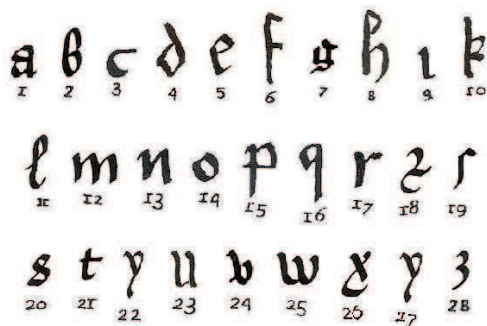 a b c d e f g h ı k
1 2 3 4 5 6 7 8 9 10
l m n o p q r ꝛ ſ
11 12 13 14 15 16 17 18 19
s t y u v w x y ȝ
20 21 22 23 24 25 26 17 28